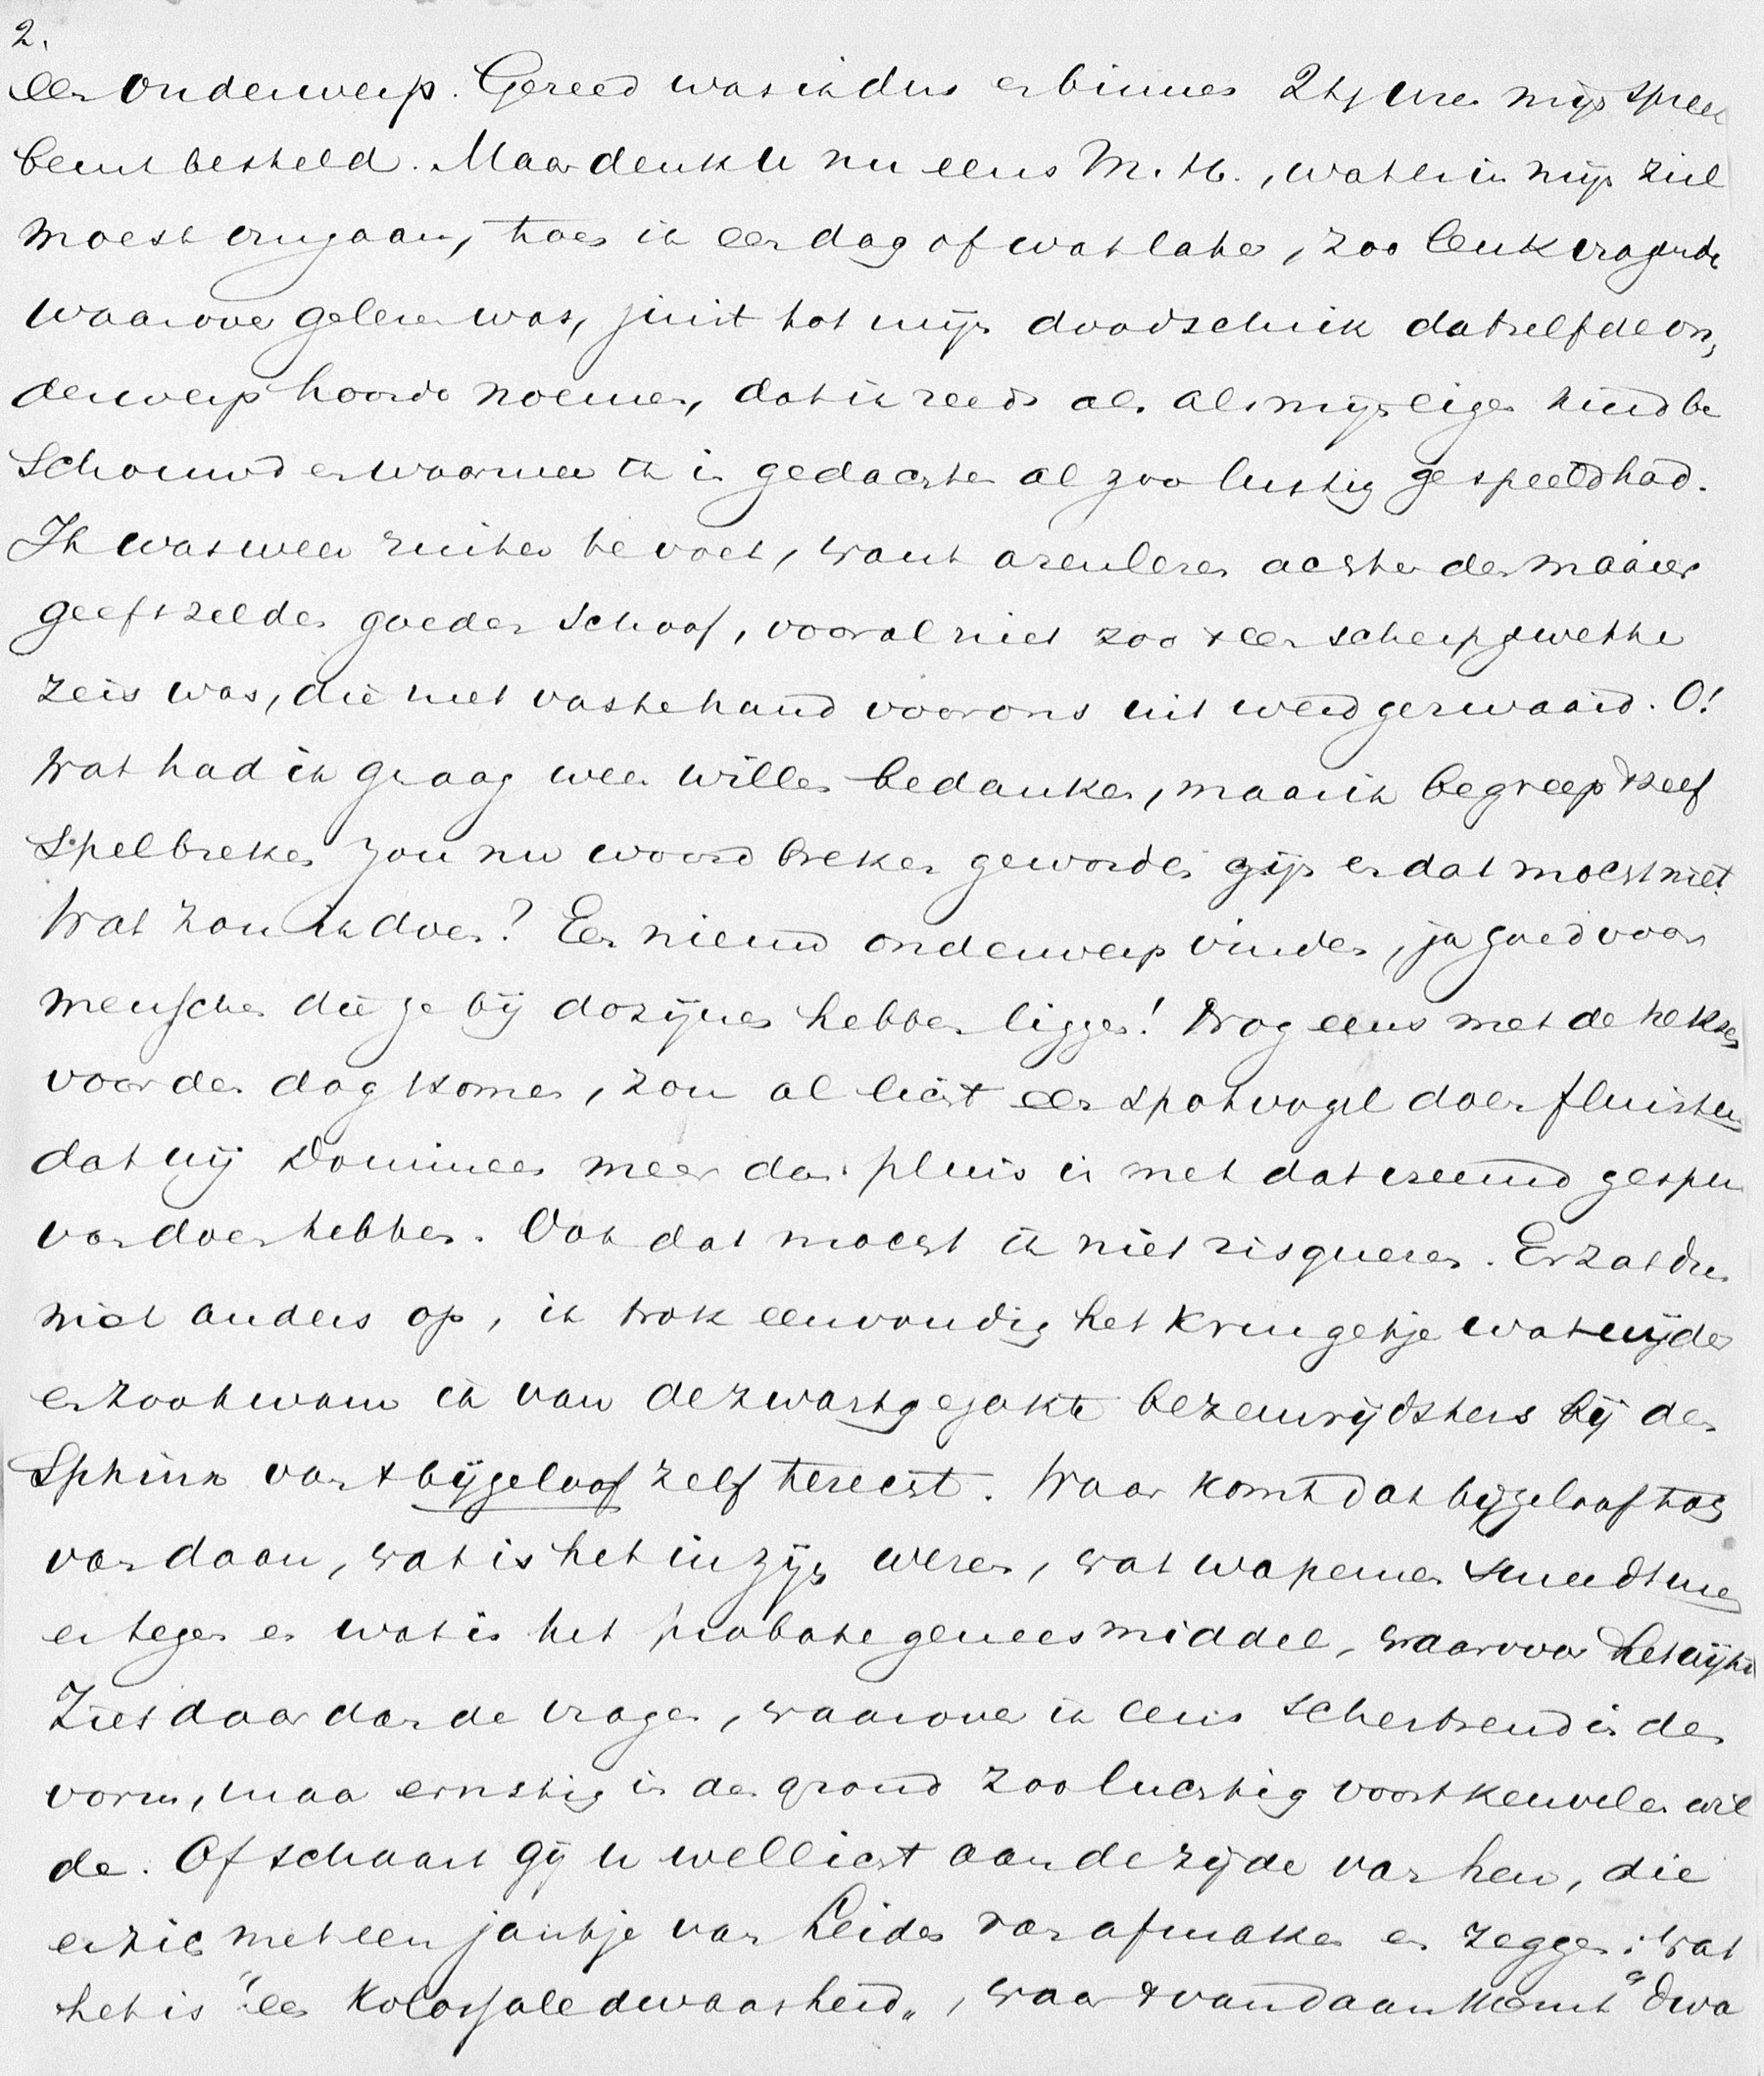 2.
een onderwerp. Gereed was ik dus en binnen 24 uren mijn spreek
beurt besteld. Maar denk U nu eens M.H., wat er in mijn ziel
moest omgaan, toen ik een dag of wat later, zoo leuk vragende
waarover gelezen was, juist tot mijn doodschrik datzelfde on,
derwerp hoorde noemen, dat ik reeds als als mijn eigen kind be
schouwd en waarmee ik in gedachten al zoo lustig gespeeld had.
Ik was weer ruiter te voet, want arenlezen achter den maaier
geeft zelden goeden schoof, vooral niet zoo 't een scherp gewette
zeis was, die met vaste hand voor ons uit werd gezwaaid. O!
Wat had ik graag weer willen bedanken, maar ik begreep 't zelf
Spelbreken zou nu woordbreken geworden zijn en dat mocht niet.
Wat zou ik doen? Een nieuw onderwerp vinden, ja goed voor
menschen die ze bij dozijnen hebben liggen! Nog eens met de heksen
voor den dag komen, zou al licht een spotvogel doen fluisteren
dat wij Dominees meer dan pluis is met dat vreemd gespuis
van doen hebben. Ook dat mocht ik niet risqueren. Er zat dus
niet anders op, ik trok eenvoudig het kringetje wat wijder
en zoo kwam ik van de zwartgejakte bezemrijdsters bij den
Sphinx van 't bijgeloof zelf terecht. Waar komt dat bijgeloof toch
van daan, wat is het in zijn wezen, wat wapenen smeedt men
er tegen en wat is het probate geneesmiddel, waarvoor het wijkt
Ziet daar dan de vragen, waarover ik eens schertsend in den
vorm, maar ernstig in den grond zoo luchtig voortkeuvelen wil
de. Of schaart gij U wellicht aan de zijde van hen, die
er zich met een jantje van Leiden van afmaken en zeggen: Wat
het is "een kolossale dwaasheid", waar 't vandaan komt "dwa